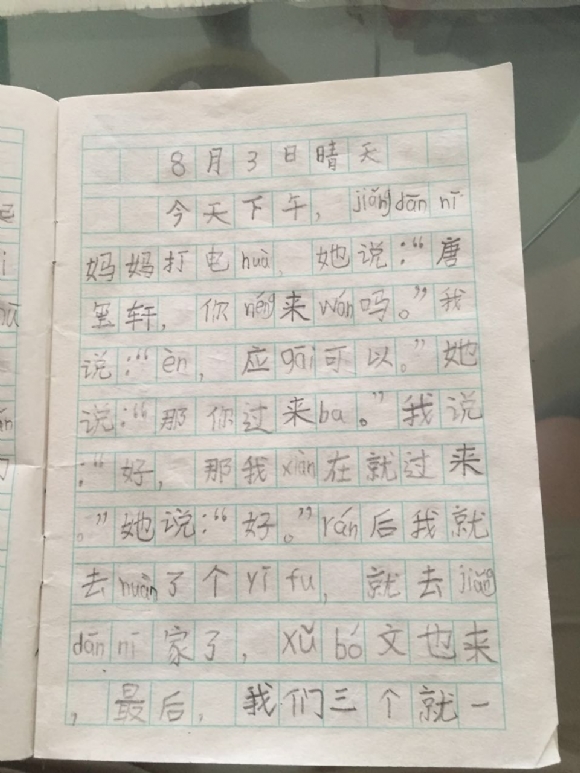 8月3日晴天
今天下午，jiǎngdānnī
妈妈打电huà，她说：“唐
玺轩，你néng来wán吗。”我
说：“èn，应gāi可以。”她
说：“那你过来ba。”我说
：“好，那我xiàn在就过来
。”她说：“好。”rán后我就
去huàn了个yīfu，就去jiǎng
dānnī家了，xǔbó文也来
，最后，我们三个就一